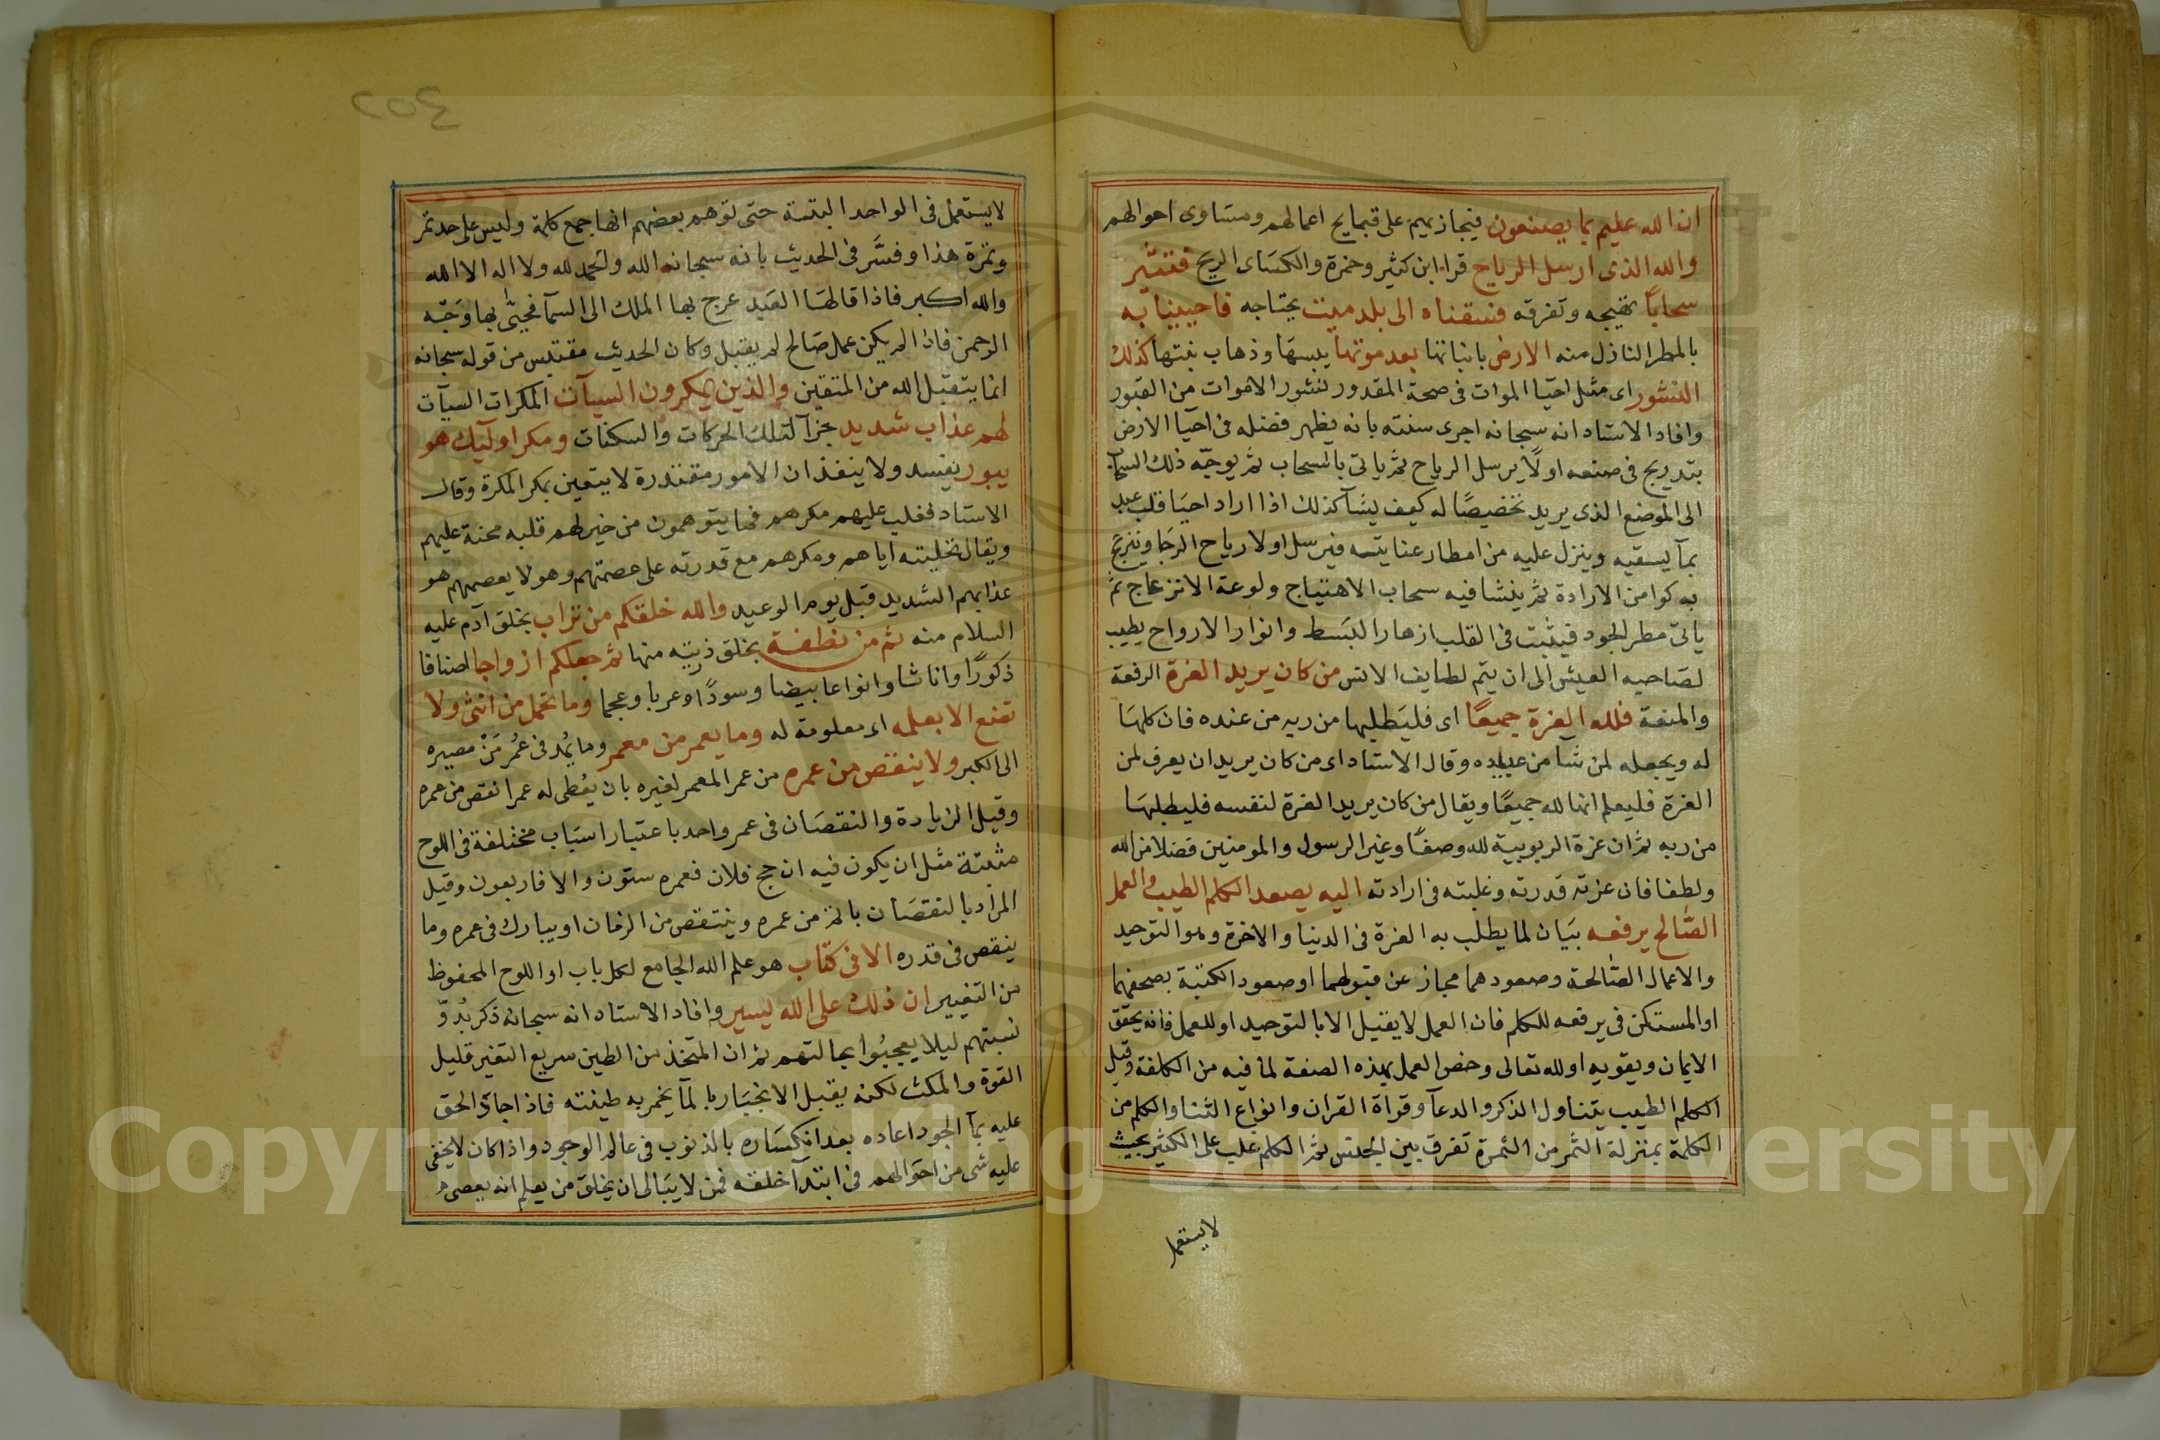 ان الله عليم بما يصنعون فيجازيهم على قبايح اعمالهم ومساوى احوالهم
والله الذى ارسل الرياح قرا ابن كثير وحمزة والكساى الريح فتثير
سحابا تهيجه وتفرقه فسقناه الى بلد ميت يحتاجه فاحيينا به
بالمطر النازل منه الارض بانباتها بعد موتها يبسها وذهاب نبتها كذلك
النشور اى مثل احيا الموات فى صحة المقدور نشور الاموات من القبور
وافاد الاستاد انه سبحانه اجرى سنته بانه يظهر فضله فى احيا الارض
بتدريج فى صنعه اولا يرسل الرياح ثم ياتى بالسحاب ثم يوجه ذلك السحاب
الى الموضع الذى يريد تخصيصا له كيف يشآ كذلك اذا اراد احيا قلب عبد
بمآ يسقيه وينزل عليه من امطار عنايته فيرسل اولا رياح الرجا ويزعج
به كوامن الارادة ثم ينشا فيه سحاب الاهتياج ولوعة الانزعاج ثم
ياتى مطر الجود فينبت فى القلب ازهار البسط وانوار الارواح يطيب
لصاحبه العيش الى ان يتم لطايف الانس من كان يريد العزة الرفعة
والمنعة فلله العزة جميعا اى فليطلبها من ربه من عنده فان كلها
له ويجعله لمن شا من عبيده وقال الاستاد اى من كان يريد ان يعرف لمن
العزة فليعلم انها لله جميعا ويقال من كان يريد العزة لنفسه فليطلبها
من ربه ثم ان عزة الربوبية لله وصفا وغير الرسول والمومنين فضلا من الله
ولطفا فان عزته قدرته وغلبته فى ارادته اليه يصعد الكلم الطيب والعمل
الصالح يرفعه بيان لما يطلب به العزة فى الدنيا والاخرة وهو التوحيد
والاعمال الصالحة وصعودهما مجاز عن قبولهما او صعود الكتبة بصحفهما
او المستكن فى يرفعه للكلم فان العمل لا يقبل الا بالتوحيد او للعمل فانه يحقق
الايمان ويقويه او لله تعالى وخص العمل بهذه الصنعة لما فيه من الكلفة وقيل
الكلم الطيب يتناول الذكر والدعآ وقراة القران وانواع الثنا والكلم من
الكلمة بمنزلة الثمر من الثمرة تفرق بين الجنس ثم الكلم غلب على الكثير بحيث
لا يستعمل
لا يستعمل فى الواحد البتة حتى توهم بعضهم انها جمع كلمة وليس على حد تمر
وتمرة هذا وفسر فى الحديث بانه سبحان الله والحمد لله ولا اله الا الله
والله اكبر فاذا قالها العبد عرج بها الملك الى السمآ فحيى بها وجه
الرحمن فاذا لم يكن عمل صالح لم يقبل وكان الحديث مقتبس من قوله سبحانه
انما يتقبل الله من المتقين والذين يمكرون السيآت المكرات السيآت
لهم عذاب شديد جزآ لتلك الحركات والسكنات ومكر اوليك هو
يبور يفسد ولا ينفذ ان الامور مقتدرة لا يتعين بمكر المكرة وقال
الاستاد فغلب عليهم مكرهم فما يتوهمون من خير لهم قلبه محنة عليهم
ويقال تخليته اياهم ومكرهم مع قدرته على عصمتهم وهو لا يعصمهم هو
عذابهم الشديد قبل يوم الوعيد والله خلقكم من تراب بخلق آدم عليه
السلام منه ثم من نطفة بخلق ذريته منها ثم جعلكم ازواجا اصنافا
ذكورا واناثا وانواعا بيضا وسودا وعربا وعجما وما تحمل من انثى ولا
تضع الا بعلمه اى معلومة له وما يعمر من معمر وما يمد فى عمر من مصيره
الى الكبر ولا ينقص من عمره من عمر المعمر لغيره بان يعطى له عمر انقص من عمره
وقيل الزيادة والنقصان فى عمر واحد باعتبار اسباب مختلفة فى اللوح
مثبتة مثل ان يكون فيه ان حج فلان فعمره ستون والا فاربعون وقيل
المراد بالنقصان ما يمر من عمره وينتقص من الزمان او يبارك فى عمره وما
ينقص فى قدره الا فى كتاب هو علم الله الجامع لكل باب او اللوح المحفوظ
من التغيير ان ذلك على الله يسير وافاد الاستاد انه سبحانه ذكر بدو
نسبتهم ليلا يعجبوا بحالتهم ثم ان المتخذ من الطين سريع التغير قليل
القوة والمكث لكنه يقبل الانجبار بالمآ يخمر به طينته فاذا جاد الحق
عليه بمآ الجود اعاده بعد انكساره بالذنوب فى عالم الوجود واذا كان لا يخفى
عليه شى من احوالهم فى ابتدآ خلقه فمن لا يبالى ان يخلق من يعلم انه يعصى
Copyright © King Saud University